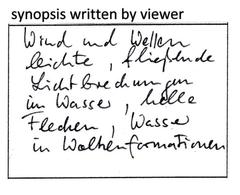 synopsis written by viewer
Wind und Wellen
leichte, fließende
Lichtbrechungen
im Wasser, helle
Flecken, Wasser
in Wolkenformationen